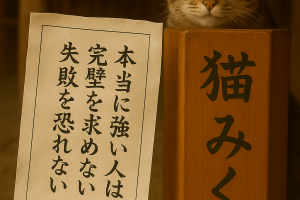 本当に強い人は
完璧を求めない
失敗を恐れない
猫みく